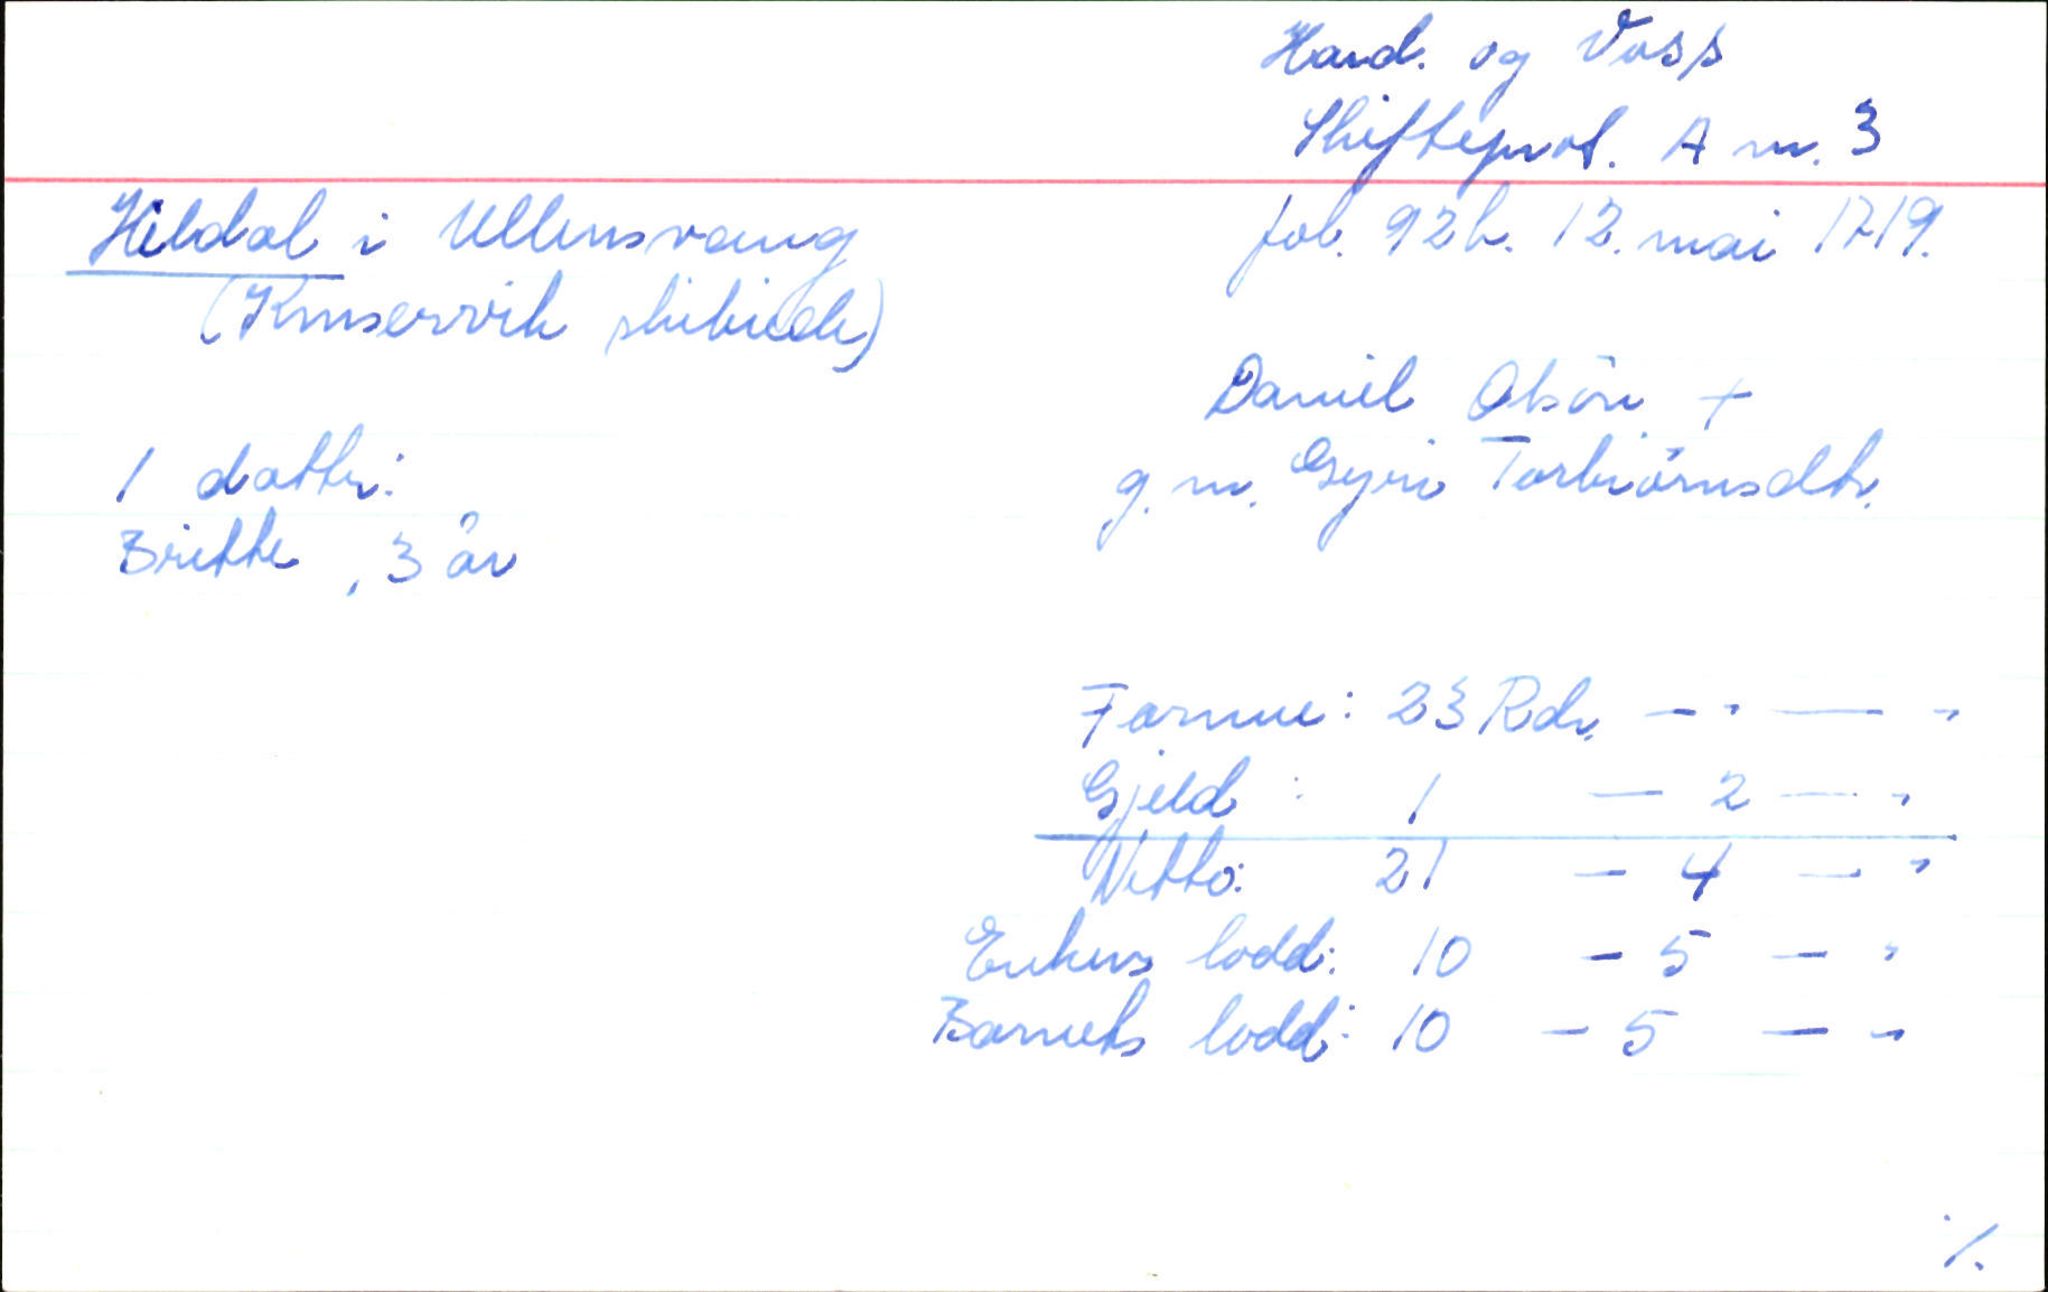 Hard. og Voss
Skifteprot. A nr. 3
fol. 92b. 12. mai 1719.
Hildal i Ullensvang
(Kinservik skibrede)
Daniel Olsön +
g. m. Gyri Torbiörnsdtr.
1 datter:
Britte, 3 år
Formue: 23 Rdr. — " — "
Gjeld : 1 — 2 — "
Netto: 21 — 4 — "
Enkens lodd: 10 — 5 — "
Barnets lodd: 10 — 5 — "
./.